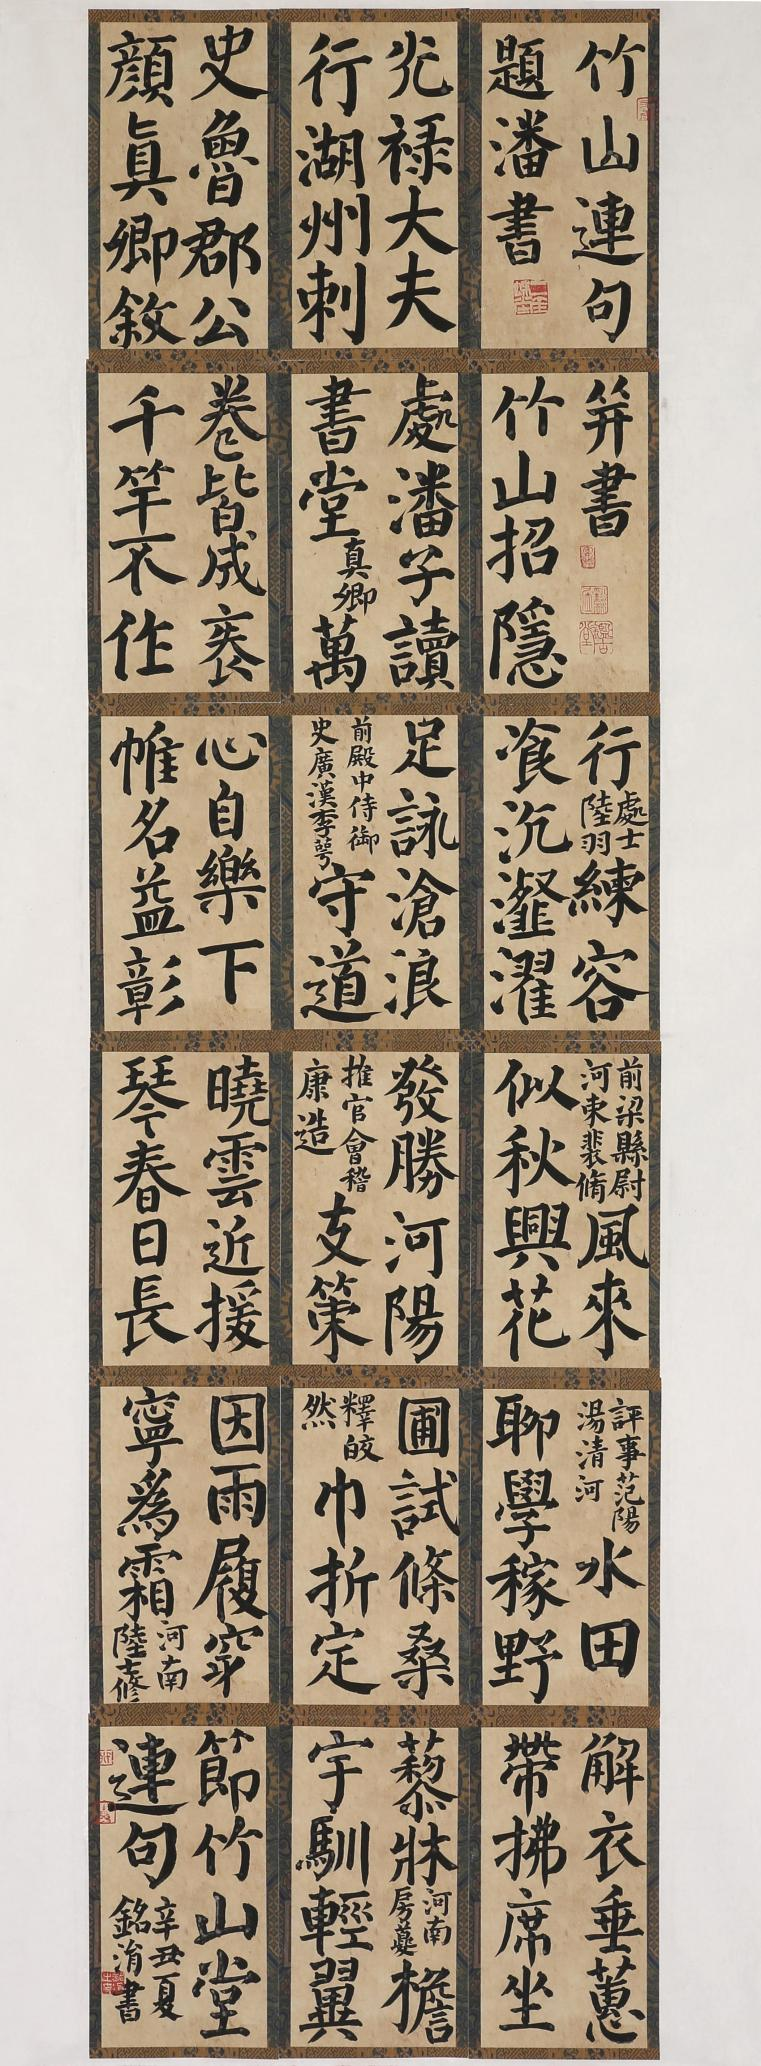 竹山連句
題潘書
光禄大夫
行湖州刺
史魯郡公
顔真卿敘
竹山招隱
處潘子讀
書堂真卿萬
卷皆成袠
千竿不作
行處士陸羽練容
飡沆瀣濯
足詠滄浪
前殿中侍御史廣漢李萼守道
心自樂下
帷名益彰
前梁縣尉河東裴脩風來
似秋興花
發勝河陽
推官會稽康造支策
曉雲近援
琴春日長
評事范陽湯清河水田
聊學稼野
圃試條桑
釋皎然巾折定
因雨履穿
寧為霜河南陸士修
解衣垂蕙
帶拂席坐
藜牀河南房夔檐
宇馴輕翼
節竹山堂
連句
辛丑夏
銘淯書